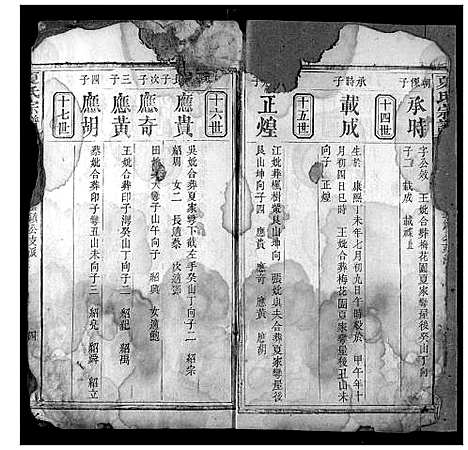 夏氏宗譜
朝僎子
承時
字公效 王妣合葬梅花園夏家彎屋後癸山丁向
子二 載成 載
十四世
承時子
載成
生於 康熙丁未年七月初九日午時歿於 甲午年十
月初四日巳時 王妣合葬梅花園夏家彎屋後丑山未
向子 正煌
十五世
子
正煌
江妣葬 艮山坤向 張妣與夫合葬夏家彎屋後
艮山坤向子四 應貴 應奇 應黃 應胡
十六世
長子
應貴
吳妣合葬夏家彎下截左手癸山丁向子二 紹宗
紹周 女二 長適蔡 次適鄧
次子
應奇
田妣 子山午向子 紹興 女適鮑
三子
應黃
王妣合葬印子灣癸山丁向子二 紹尼 紹禹
四子
應胡
蔡妣合葬印子彎丑山未向子三 紹堯 紹舜 紹立
十七世
夏氏宗譜
公支派
四